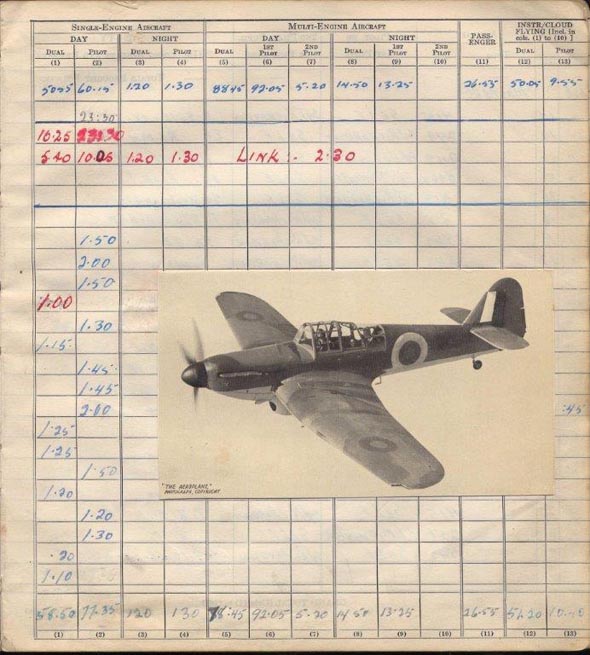 SINGLE-ENGINE AIRCRAFT MULTI-ENGINE AIRCRAFT PASS-ENGER INSTR/CLOUD FLYING [Incl. in cols. (1) to (10) ]
DAY NIGHT DAY NIGHT
DUAL PILOT DUAL PILOT DUAL 1ST PILOT 2ND PILOT DUAL 1ST PILOT 2ND PILOT DUAL PILOT
(1) (2) (3) (4) (5) (6) (7) (8) (9) (10) (11) (12) (13)
60.15 1.20 1.30 88.45 92.05 5.20 14.50 13.25 26.55 50.05 9.55
23.30
16.25 23.30
5.40 10.05 1.20 1.30 LINK:- 2.30
1.50
2.00
1.50
1.00
1.30
1.15
1.45
1.45
2.00 .45
1.25
1.25
1.50
1.20
1.20
1.30
.20
1.10
"THE AEROPLANE,"
PHOTOGRAPH, COPYRIGHT
58.50 77.35 1.20 1.30 92.05 5.20 14.50 13.25 26.55 51.20 10.40
(1) (2) (3) (4) (5) (6) (7) (8) (9) (10) (11) (12) (13)